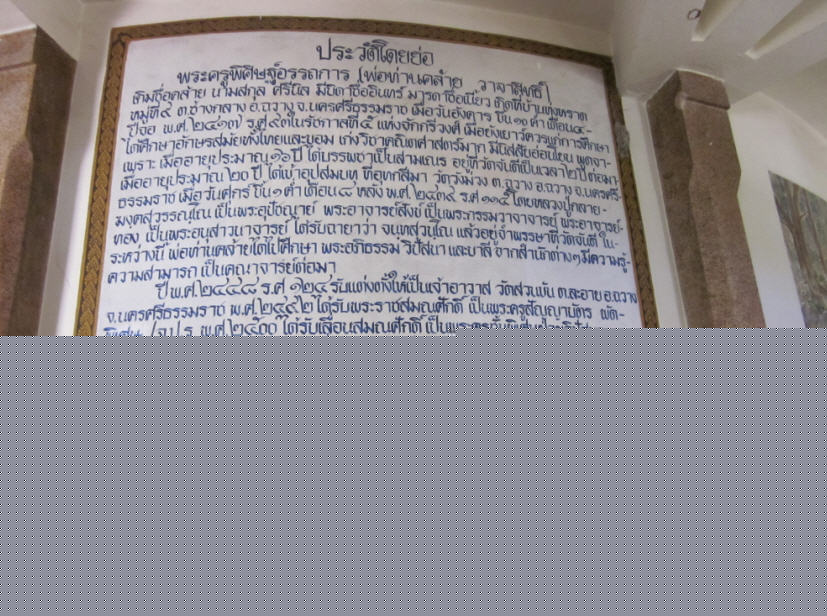 ประวัติโดยย่อ
พระครูพิศิษฐ์อรรถการ (พ่อท่านคล้าย วาจาสิทธิ์)
เดิมชื่อคล้าย นามสกุล ศรีนิล มีบิดาชื่ออินทร์ มารดาชื่อเนี่ยว เกิดที่บ้านทุ่งทราด
หมู่ที่ ๔ ต.ช้างกลาง อ.ฉวาง จ.นครศรีธรรมราช เมื่อวันอังคาร ขึ้น ๑๐ ค่ำ เดือน ๔-
ปีจอ พ.ศ.๒๔๑๗ ร.ศ ๙๓ ในรัชกาลที่ ๕ แห่งจักกรีวงศ์ เมื่อยังเยาว์ควรแก่การศึกษา
ได้ศึกษาอักษรสมัยทั้งไทยและขอม เก่งวิชาคณิตศาสตร์มาก มีนิสัยอ่อนโยน พูดจา-
เพราะ เมื่ออายุประมาณ ๑๖ ปี ได้บรรพชาเป็นสามเณร อยู่ที่วัดจันดีเป็นเวลา ๒ ปี ต่อมา
เมื่ออายุประมาณ ๒๐ ปี ได้เข้าอุปสมบท ที่อุทกสีมา วัดวังม่วง ต.ฉวาง อ.ฉวาง จ.นครศรี-
ธรรมราช เมื่อวันศุกร์ ขึ้น ๑ ค่ำ เดือน ๘ หลัง พ.ศ.๒๔๓๙ ร.ศ ๑๑๔ โดยหลวงปู่กลาย-
มงคสุวรรณฺโณ เป็นพระอุปัชฌาย์ พระอาจารย์สังข์ เป็นพระกรรมวาจาจารย์ พระอาจารย์-
ทอง เป็นพระอนุสาวนาจารย์ ได้รับฉายาว่า จนฺทสุวณฺโณ แล้วอยู่จำพรรษาที่วัดจันดี ใน-
ระหว่างนี้ พ่อท่านคล้ายได้ไปศึกษา พระอภิธรรม วิปัสนา และบาลี จากสำนักต่างๆ มีความรู้-
ความสามารถ เป็นคุณาจารย์ต่อมา
ปี พ.ศ.๒๔๔๘ ร.ศ ๑๒๔ รับแต่งตั้งให้เป็นเจ้าอาวาส วัดสวนขัน ต.ละอาย อ.ฉวาง
จ.นครศรีธรรมราช พ.ศ ๒๔๙๒ ได้รับพระราชสมณศักดิ์ เป็นพระครูสัญญาบัตร พัด-
พิเศษ (จ.ป.ร. พ.ศ ๒๕๐๐ ได้รับเลื่อนสมณศักดิ์ เป็นพระครูชั้นพิเศษ